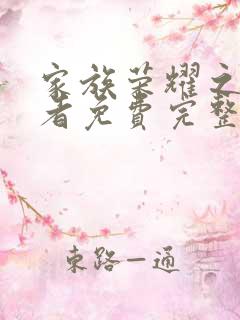 家族荣耀之
者免费完整
東路一通